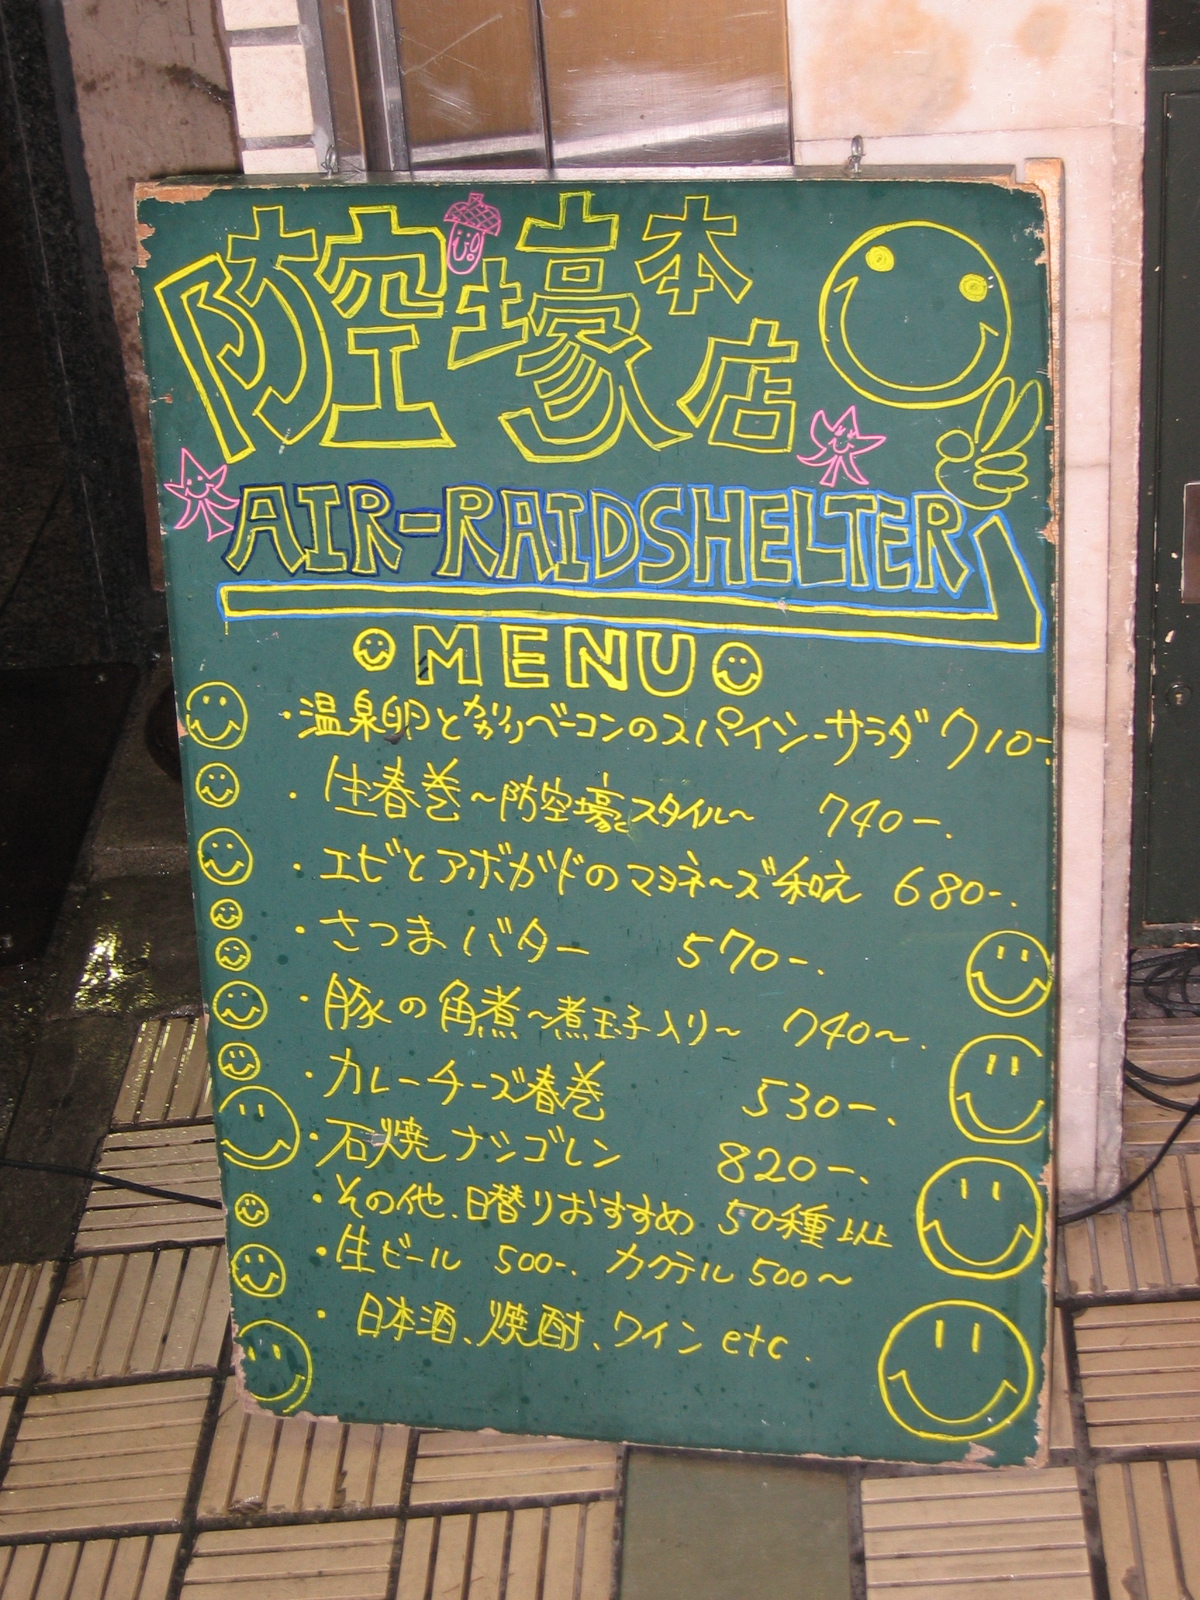 防空壕本店
AIR-RAIDSHELTER
MENU
・温泉卵とカリカリベーコンのスパイシーサラダ 710-
・生春巻～防空壕スタイル～ 740-.
・エビとアボガドのマヨネーズ和え 680-.
・さつまバター 570-.
・豚の角煮～煮玉子入り～ 740～.
・カレーチーズ春巻 530-.
・石焼ナシゴレン 820-.
・その他、日替りおすすめ 50種以上
・生ビール 500-. カクテル 500～
・日本酒、焼酎、ワイン etc.